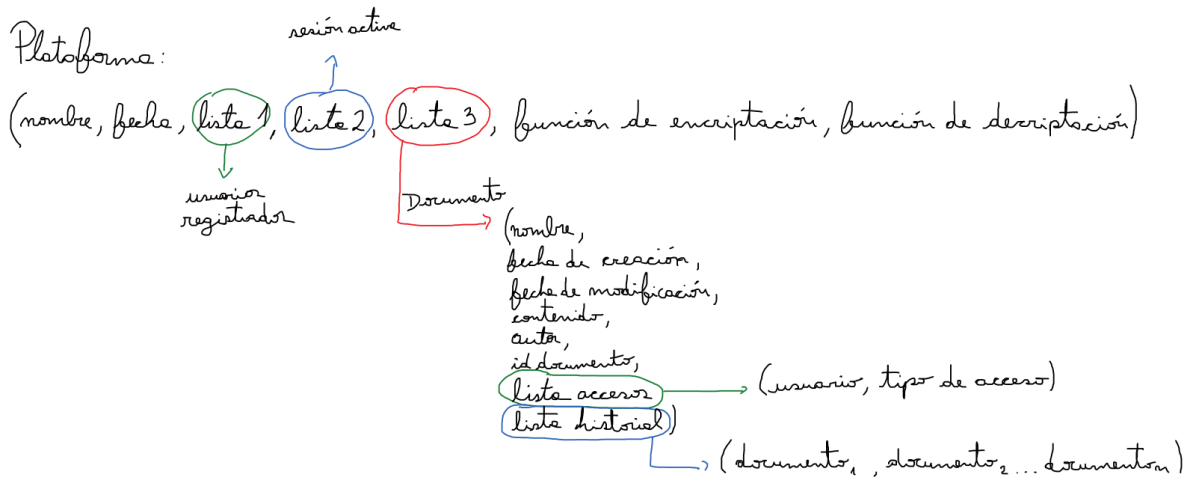 sesión activa
Plataforma:
(nombre, fecha, lista 1, lista 2, lista 3, función de encriptación, función de decriptación)
usuarios
registrados
Documento
(nombre,
fecha de creación,
fecha de modificación,
contenido,
autor,
id documento,
lista accesos
(usuario, tipo de acceso)
lista historial)
(documento1, documento2 ... documenton)